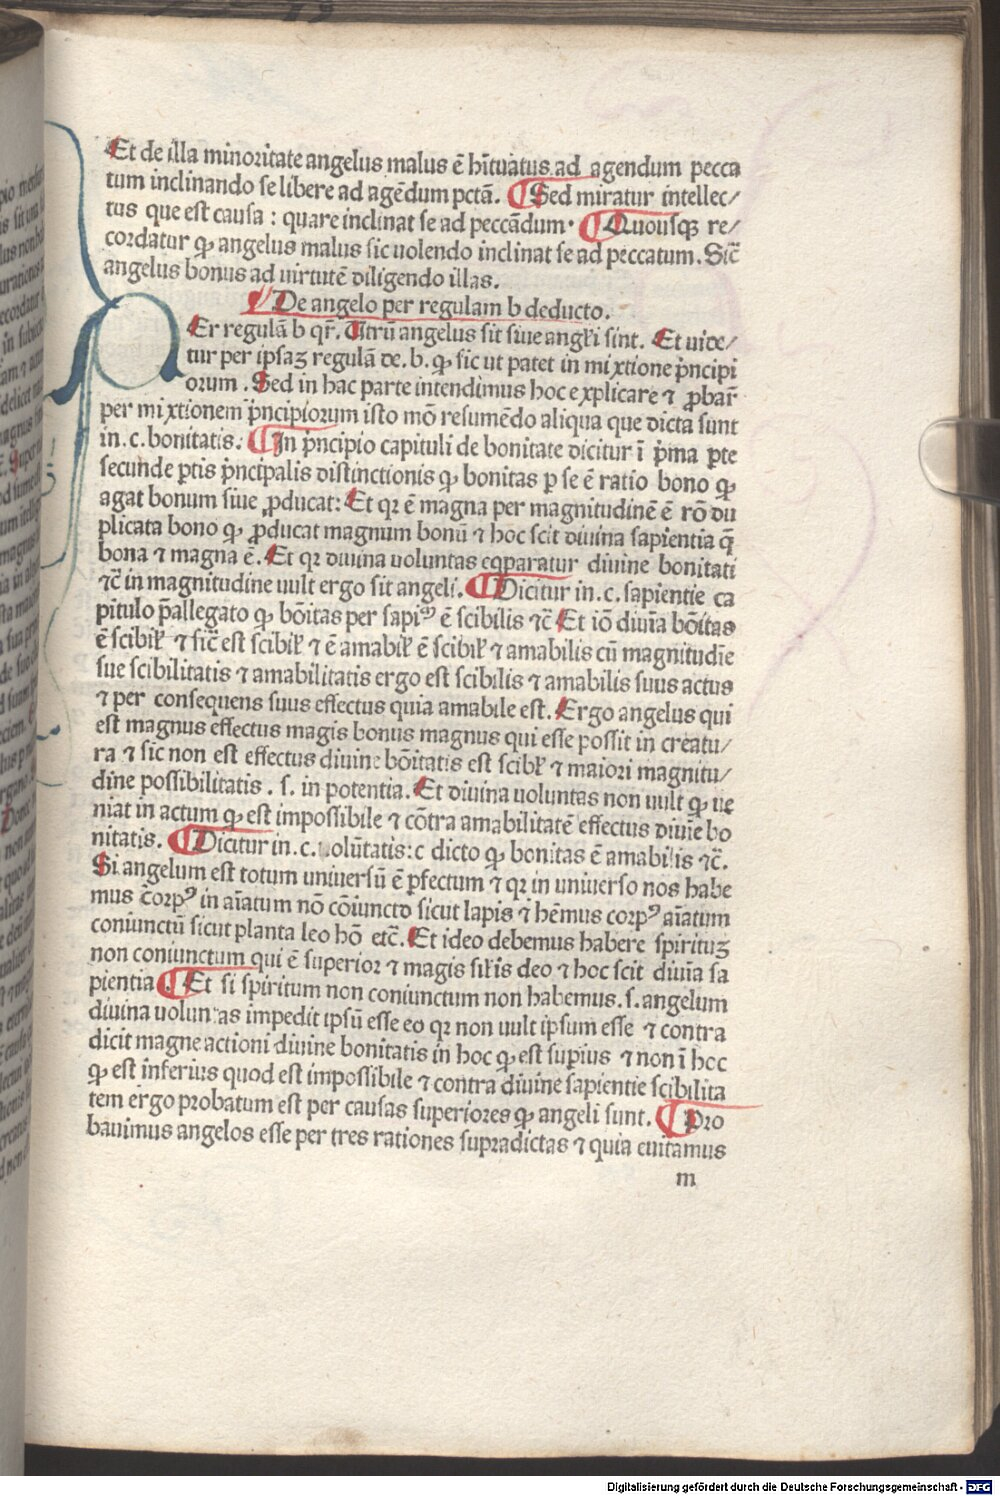 Et de illa minoritate angelus malus ē hītuatus ad agendum pecca
tum inclinando se libere ad agēdum pctā. ¶ Sed miratur intellec/
tus que est causa : quare inclinat se ad peccādum· ¶ Quousqꝫ re/
cordatur ꝙ angelus malus sic uolendo inclinat se ad peccatum. Sic̄
angelus bonus ad uirtutē diligendo illas.
¶ De angelo per regulam b deducto.
PEr regulā b qr̄. Utrū angelus sit siue angłi sint. Et uide/
tur per ipsaꝫ regulā de. b. ꝙ sic ut patet in mixtione p̄ncipi
orum . Sed in hac parte intendimus hoc explicare ⁊ ꝓbar̄
per mixtionem p̄ncipiorum isto mō resumēdo aliqua que dicta sunt
in. c. bonitatis. ¶ In p̄ncipio capituli de bonitate dicitur ī p̄ma ꝑte
secunde ꝑtis p̄ncipalis distinctionis ꝙ bonitas ꝑ se ē ratio bono ꝙ
agat bonum siue ꝓducat: Et qꝛ ē magna per magnitudinē ē rō du
plicata bono ꝙ ꝓducat magnum bonū ⁊ hoc scit diuina sapientia q̄
bona ⁊ magna ē. Et qꝛ diuina uoluntas cōparatur diuine bonitati
⁊c̄ in magnitudine uult ergo sit angeli. ¶ Dicitur in. c. sapientie ca
pitulo p̄allegato ꝙ bōitas per sapiꝫ ē scibilis ⁊c̄ Et iō diuīa bōitas
ē scibił ⁊ sic̄ est scibił ⁊ ē amabił ē scibił ⁊ amabilis cū magnitudīe
sue scibilitatis ⁊ amabilitatis ergo est scibilis ⁊ amabilis suus actus
⁊ per consequens suus effectus quia amabile est. Ergo angelus qui
est magnus effectus magis bonus magnus qui esse possit in creatu/
ra ⁊ sic non est effectus diuine bōitatis est scibł ⁊ maiori magnitu/
dine possibilitatis . s. in potentia. Et diuina uoluntas non uult ꝙ ue
niat in actum ꝙ est impossibile ⁊ cōtra amabilitatē effectus diuīe bo
nitatis. ¶ Dicitur in. c. uolūtatis: c dicto ꝙ bonitas ē amabilis ⁊c̄.
Si angelum est totum uniuersū ē ꝑfectum ⁊ qꝛ in uniuerso nos habe
mus c̄orpꝰ in aīatum nō cōiuncto sicut lapis ⁊ hēmus corpꝰ aīatum
coniunctū sicut planta leo hō etc̄. Et ideo debemus habere spirituꝫ
non coniunctum qui ē superior ⁊ magis siłis deo ⁊ hoc scit diuīa sa
pientia ¶. Et si spiritum non coniunctum non habemus. s. angelum
diuina voluntas impedit ipsū esse eo qꝛ non uult ipsum esse ⁊ contra
dicit magne actioni diuine bonitatis in hoc ꝙ est suꝑius ⁊ non ī hoc
ꝙ est inferius quod est impossibile ⁊ contra diuine sapientie scibilita
tem ergo probatum est per causas superiores ꝙ angeli sunt. ¶ Pro
bauimus angelos esse per tres rationes supradictas ⁊ quia euitamus
m
Digitalisierung gefördert durch die Deutsche Forschungsgemeinschaft - DFG